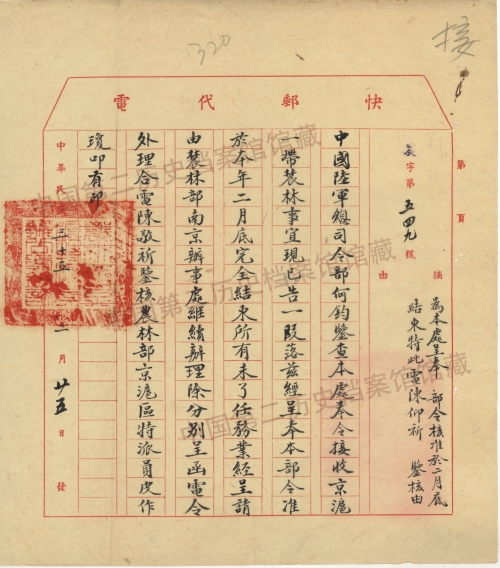 320
接
快郵代電
第　頁
字第五四九號
摘由
為本處呈奉　部令核准於二月底
結束特此電陳仰祈　鑒核由
中國陸軍總司令部何鈞鑒查本處奉令接收京滬
一帶農林事宜現已告一段落茲經呈奉本部令准
於本年二月底完全結束所有未了任務業經呈請
由農林部南京辦事處繼續辦理除分別呈函電令
外理合電陳敬祈鑒核農林部京滬區特派員皮作
瓊叩有印
中華民　三十五　二月廿五日發
中国第二历史档案馆馆藏
中国第二历史档案馆馆藏
中国第二历史档案馆馆藏